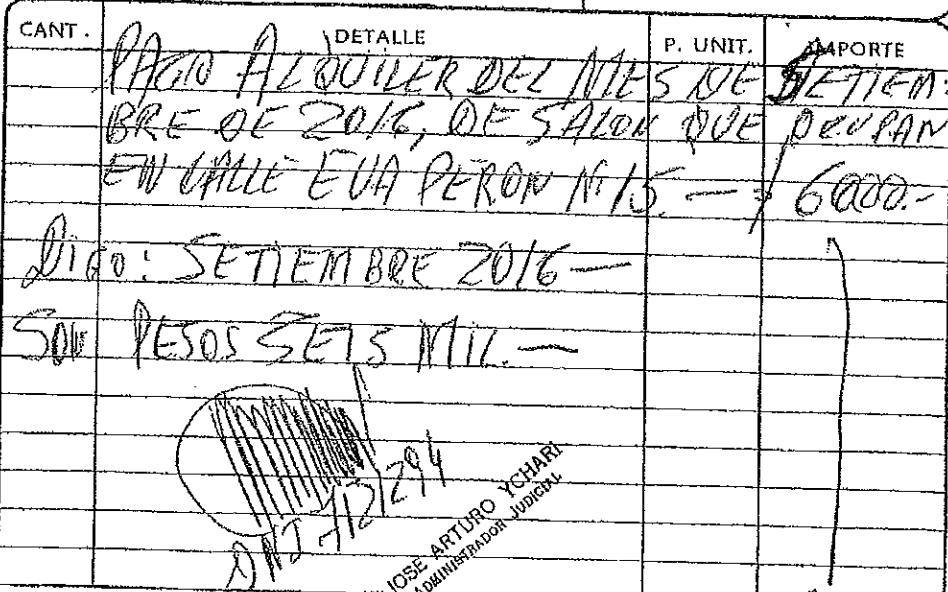 CANT. DETALLE P. UNIT. IMPORTE
PAGO ALQUILER DEL MES DE SETIEM-
BRE DE 2016, DE SALON QUE OCUPAN
EN CALLE EVA PERON Nº 15. — $ 6000.-
DIGO: SETIEMBRE 2016 —
SON PESOS SEIS MIL. —
DNI
JOSE ARTURO YCHARI
ADMINISTRADOR JUDICIAL